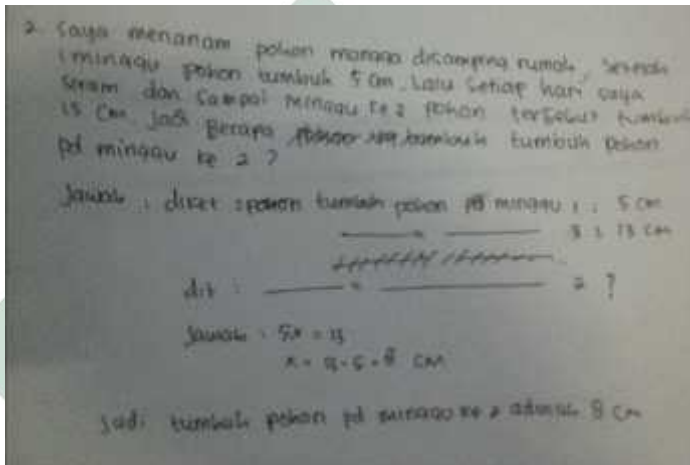 2. Saya menanam pohon mangga disamping rumah, setelah
1 minggu pohon tumbuh 5 cm. Lalu setiap hari saya
siram dan sampai minggu ke 2 pohon tersebut tumbuh
13 cm. Jadi berapa tumbuh pohon
pd minggu ke 2 ?
Jawab : diket : tumbuh pohon pd minggu 1 : 5 cm
: 13 cm
dit : 2 ?
Jawab : 5x = 13
x = 13 - 5 = 8 cm
Jadi tumbuh pohon pd minggu ke 2 adalah 8 cm